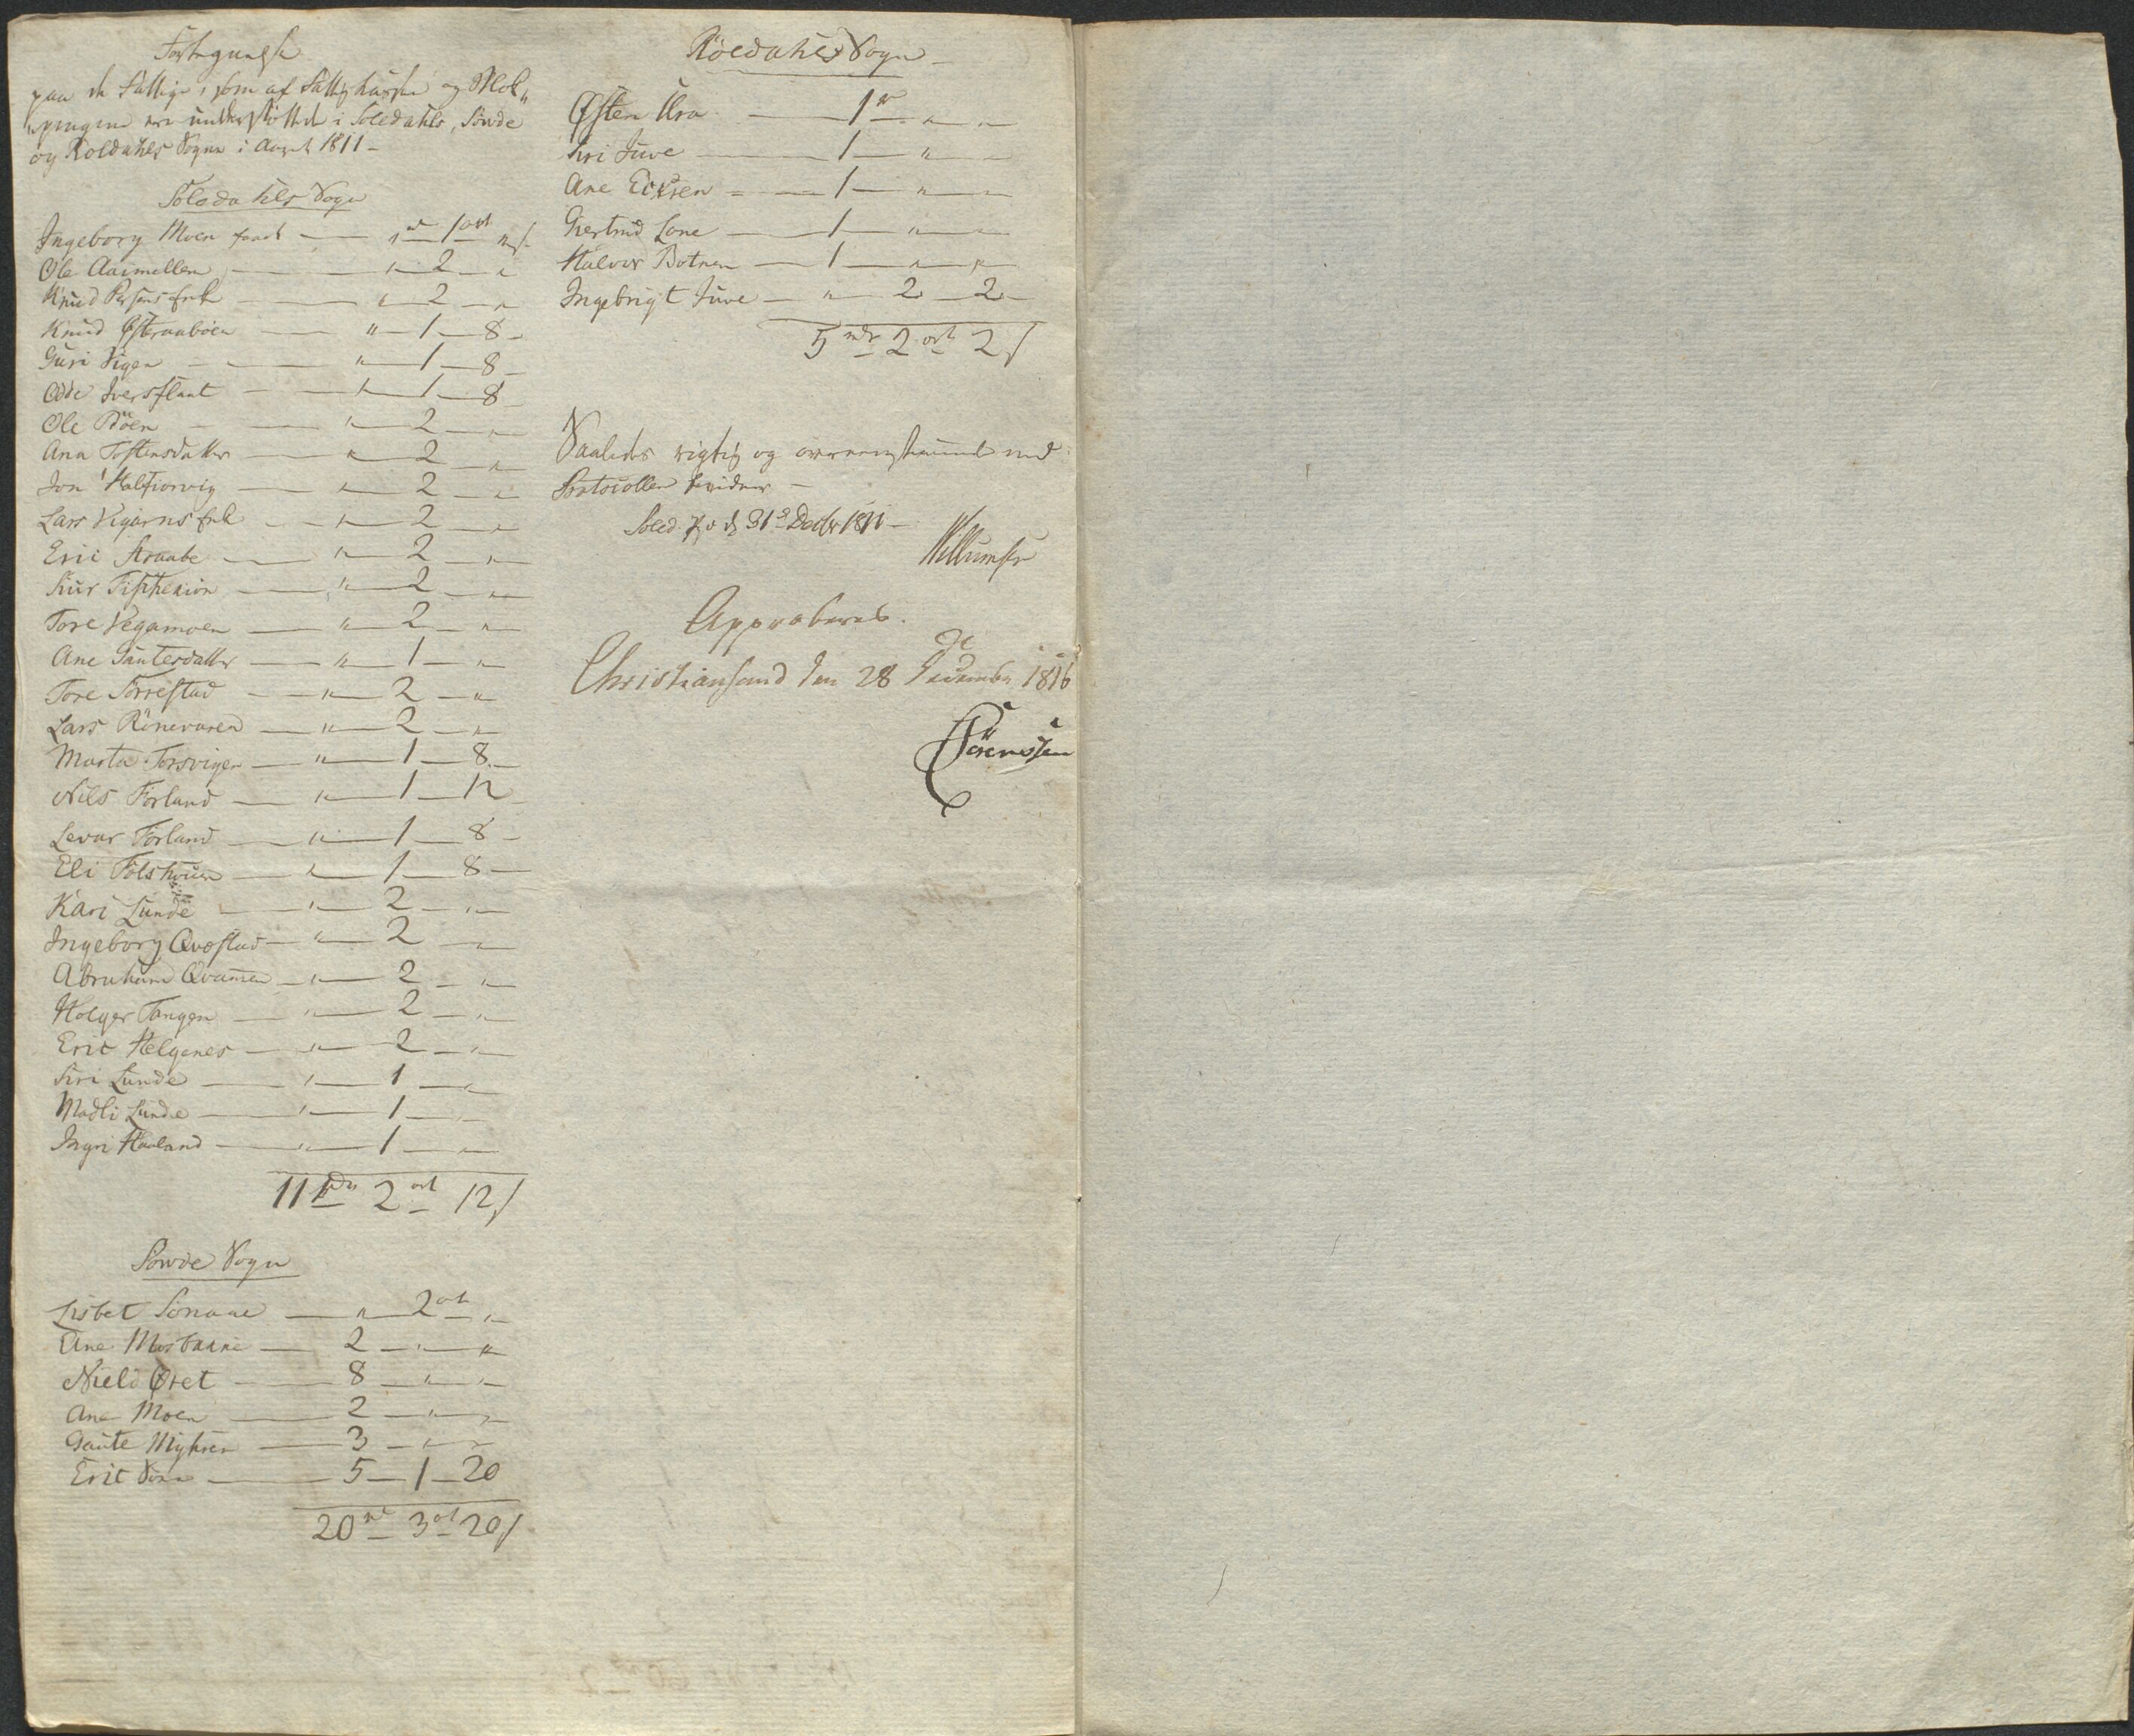 Fortegnelse
paa de Fattige, som af Fattigkassen og Blok„
„pengene ere understøttede i Soledahls, Sövde
og Röldahls Sogne i Aaret 1811 –
Soledahls Sogn
Ingeborg Moen faaet — „rd — 1 ort — „ s
Ole Aarmellen — „ — 2 — „
Knud Persens Enke — „ — 2 — „
Knud Østeraaböen — „ — 1 — 8 –
Guri Vigen — „ — 1 — 8 –
Odde Iversflaat — „ — 1 — 8 –
Ole Böen — „ — 2 — „
Ana Tostensdatter — „ — 2 — „
Jon Halfiorvig — „ — 2 — „
Lars Vigarns Enke — „ — 2 — „
Eric Straabe — „ — 2 — „
— „ — 2 — „
Tore Vegamoen — „ — 2 — „
Ane Gautesdatter — „ — 1 — „
Tore Förrestad — „ — 2 — „
Lars Rönevaren — „ — 2 — „
Marta Forsvigen — „ — 1 — 8 –
Nils Förland — „ — 1 — 12
Levar Förland — „ — 1 — 8 –
Eli — „ — 1 — 8 –
Kari Lunde — „ — 2 — „
Ingeborg Qvæstad — „ — 2 — „
Abraham Qvamen — „ — 2 — „
Holger Tangen — „ — 2 — „
Eric Helgenes — „ — 2 — „
Siri Lunde — „ — 1 — „
Madli Lunde — „ — 1 — „
Ingri Havland — „ — 1 — „
11 rdr 2 ort 12 s
Sövde Sogn
Lisbet Sönaae — „ — 2 ort — „
Ane Mosbakke — 2 — „ — „
Niels Øret — 8 — „ — „
Ane Moen — 2 — „ — „
Gaute Myhren — 3 — „ — „
Eric — 5 — 1 — 20
20 rd 3 ort 20 s
Röldahls Sogn –
Østen Ura — 1 r — „ — „
Siri Juve — 1 — „ — „
Ane Ecksen — 1 — „ — „
Giertrud Lone — 1 — „ — „
Halvor Botnen — 1 — „ — „
Ingebrigt Juve — „ — 2 — 2 –
5 rdr 2 ort 2 s
Saaledes rigtig og overeenstemmende med
Protocollen bevidner –
Soled. d 31 Decbr 1811 –
Willumsen
Approberes.
Christiansand den 28 December 1816
Sörenssen